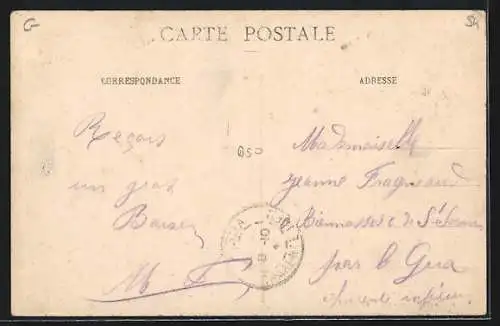 G
Sk
CARTE POSTALE
CORRESPONDANCE
ADRESSE
Reçois
un gros
Baiser
M F
650
Mademoiselle
Jeanne Fragneaud
de St
par le Gua
Charente inférieure